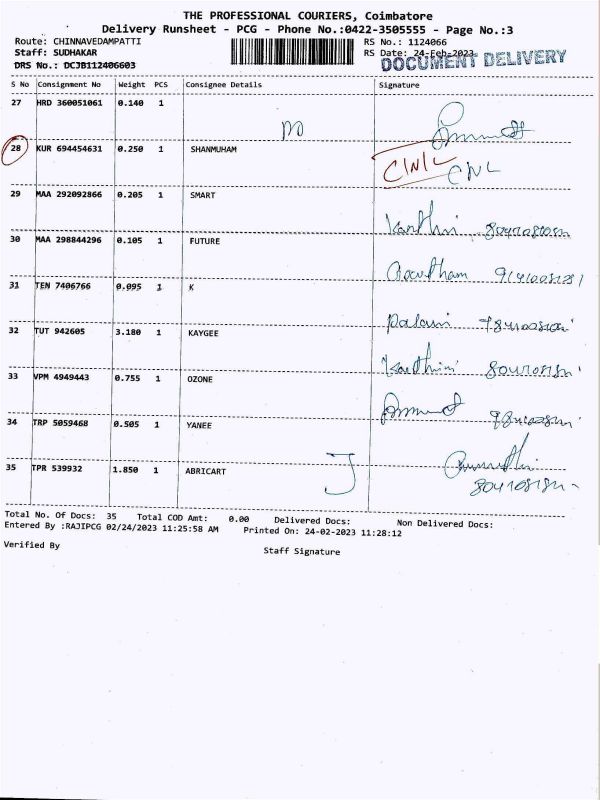 THE PROFESSIONAL COURIERS, Coimbatore
Delivery Runsheet - PCG - Phone No.:0422-3505555 - Page No.:3
Route: CHINNAVEDAMPATTI RS No.: 1124066
Staff: SUDHAKAR RS Date: 24-Feb-2023
DOCUMENT DELIVERY
DRS No.: DCJB112406603
S No Consignment No Weight PCS Consignee Details Signature
27 HRD 360051061 0.140 1
m
28 KUR 694454631 0.250 1 SHANMUHAM
CNL CNL
29 MAA 292092866 0.205 1 SMART
30 MAA 298844296 0.105 1 FUTURE
Goutham
31 TEN 7406766 0.095 1 K
32 TUT 942605 3.180 1 KAYGEE
33 VPM 4949443 0.755 1 OZONE
34 TRP 5059468 0.505 1 YANEE
35 TPR 539932 1.850 1 ABRICART
J
Total No. Of Docs: 35 Total COD Amt: 0.00 Delivered Docs: Non Delivered Docs:
Entered By :RAJIPCG 02/24/2023 11:25:58 AM Printed On: 24-02-2023 11:28:12
Verified By Staff Signature